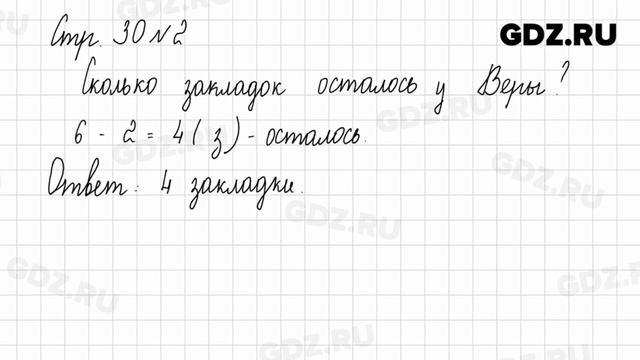 GDZ.RU
Стр. 30 № 2
Сколько закладок осталось у Веры?
6 - 2 = 4 (з) - осталось.
Ответ: 4 закладки.
GDZ.RU
GDZ.RU
GDZ.RU
GDZ.RU
GDZ.RU
GDZ.RU
GDZ.RU